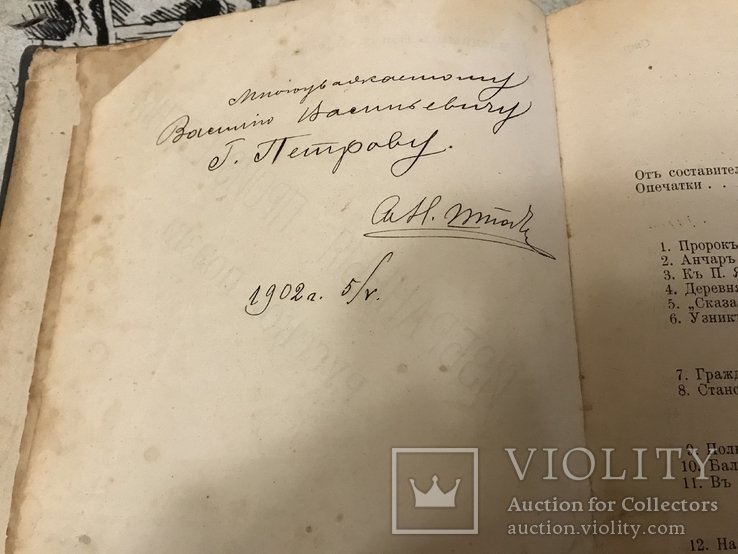 Многоуважаемому
Василию Васильевичу
Г. Петрову.
1902 г. 5/V.
Отъ составител
Опечатки . .
1. Пророкъ
2. Анчаръ
3. Къ П. Я
4. Деревня
5. „Сказа
6. Узникъ
7. Гражд
8. Станс
9. Полк
10. Бал
11. Въ
12. На
VIOLITY
Auction for Collectors
auction.violity.com